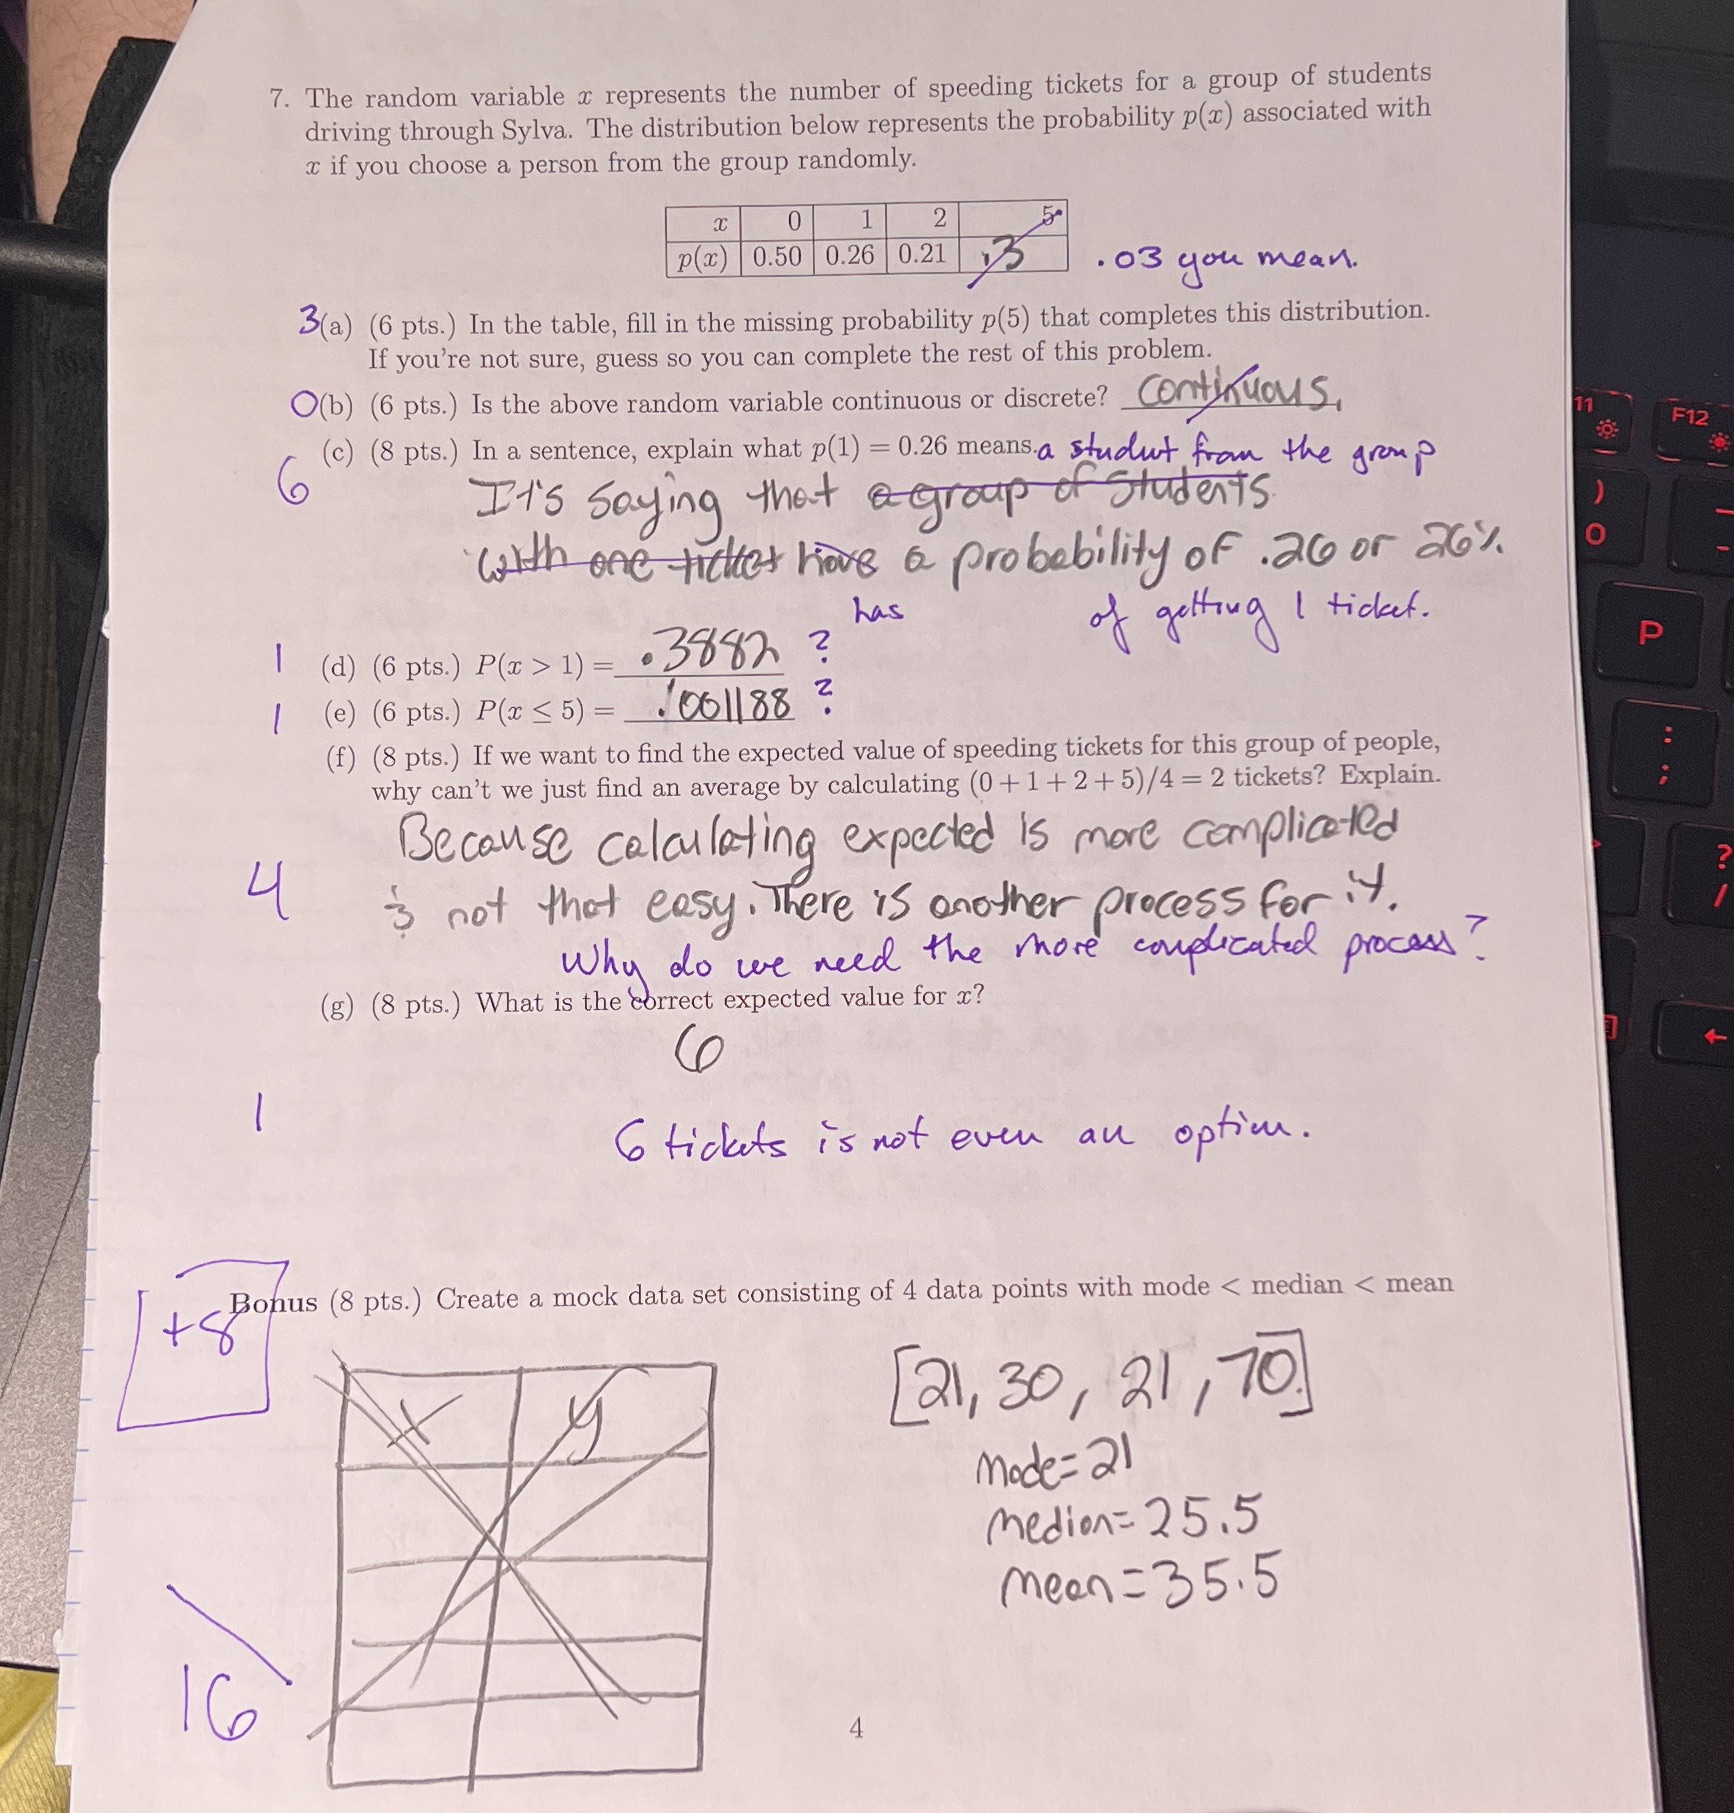 7. The random variable x represents the number of speeding tickets for a group of students
driving through Sylva. The distribution below represents the probability p(x) associated with
x if you choose a person from the group randomly.
x 0 1 2 5
p(x) 0.50 0.26 0.21 .3 .03 you mean.
3 (a) (6 pts.) In the table, fill in the missing probability p(5) that completes this distribution.
If you're not sure, guess so you can complete the rest of this problem.
0 (b) (6 pts.) Is the above random variable continuous or discrete? continuous.
(c) (8 pts.) In a sentence, explain what p(1) = 0.26 means. a student from the group
6 It's saying that a group of students
with one ticket have a probability of .26 or 26%.
has of getting 1 ticket.
1 (d) (6 pts.) P(x > 1) = .3882 ?
1 (e) (6 pts.) P(x ≤ 5) = .001188 ?
(f) (8 pts.) If we want to find the expected value of speeding tickets for this group of people,
why can't we just find an average by calculating (0 + 1 + 2 + 5)/4 = 2 tickets? Explain.
Because calculating expected is more complicated
4 & not that easy. There is another process for it.
Why do we need the more complicated process?
(g) (8 pts.) What is the correct expected value for x?
6
1 6 tickets is not even an option.
+8 Bonus (8 pts.) Create a mock data set consisting of 4 data points with mode < median < mean
x y [21, 30, 21, 70]
mode = 21
median = 25.5
mean = 35.5
16
4
11 F12
) 0
P
: ;
? /
←